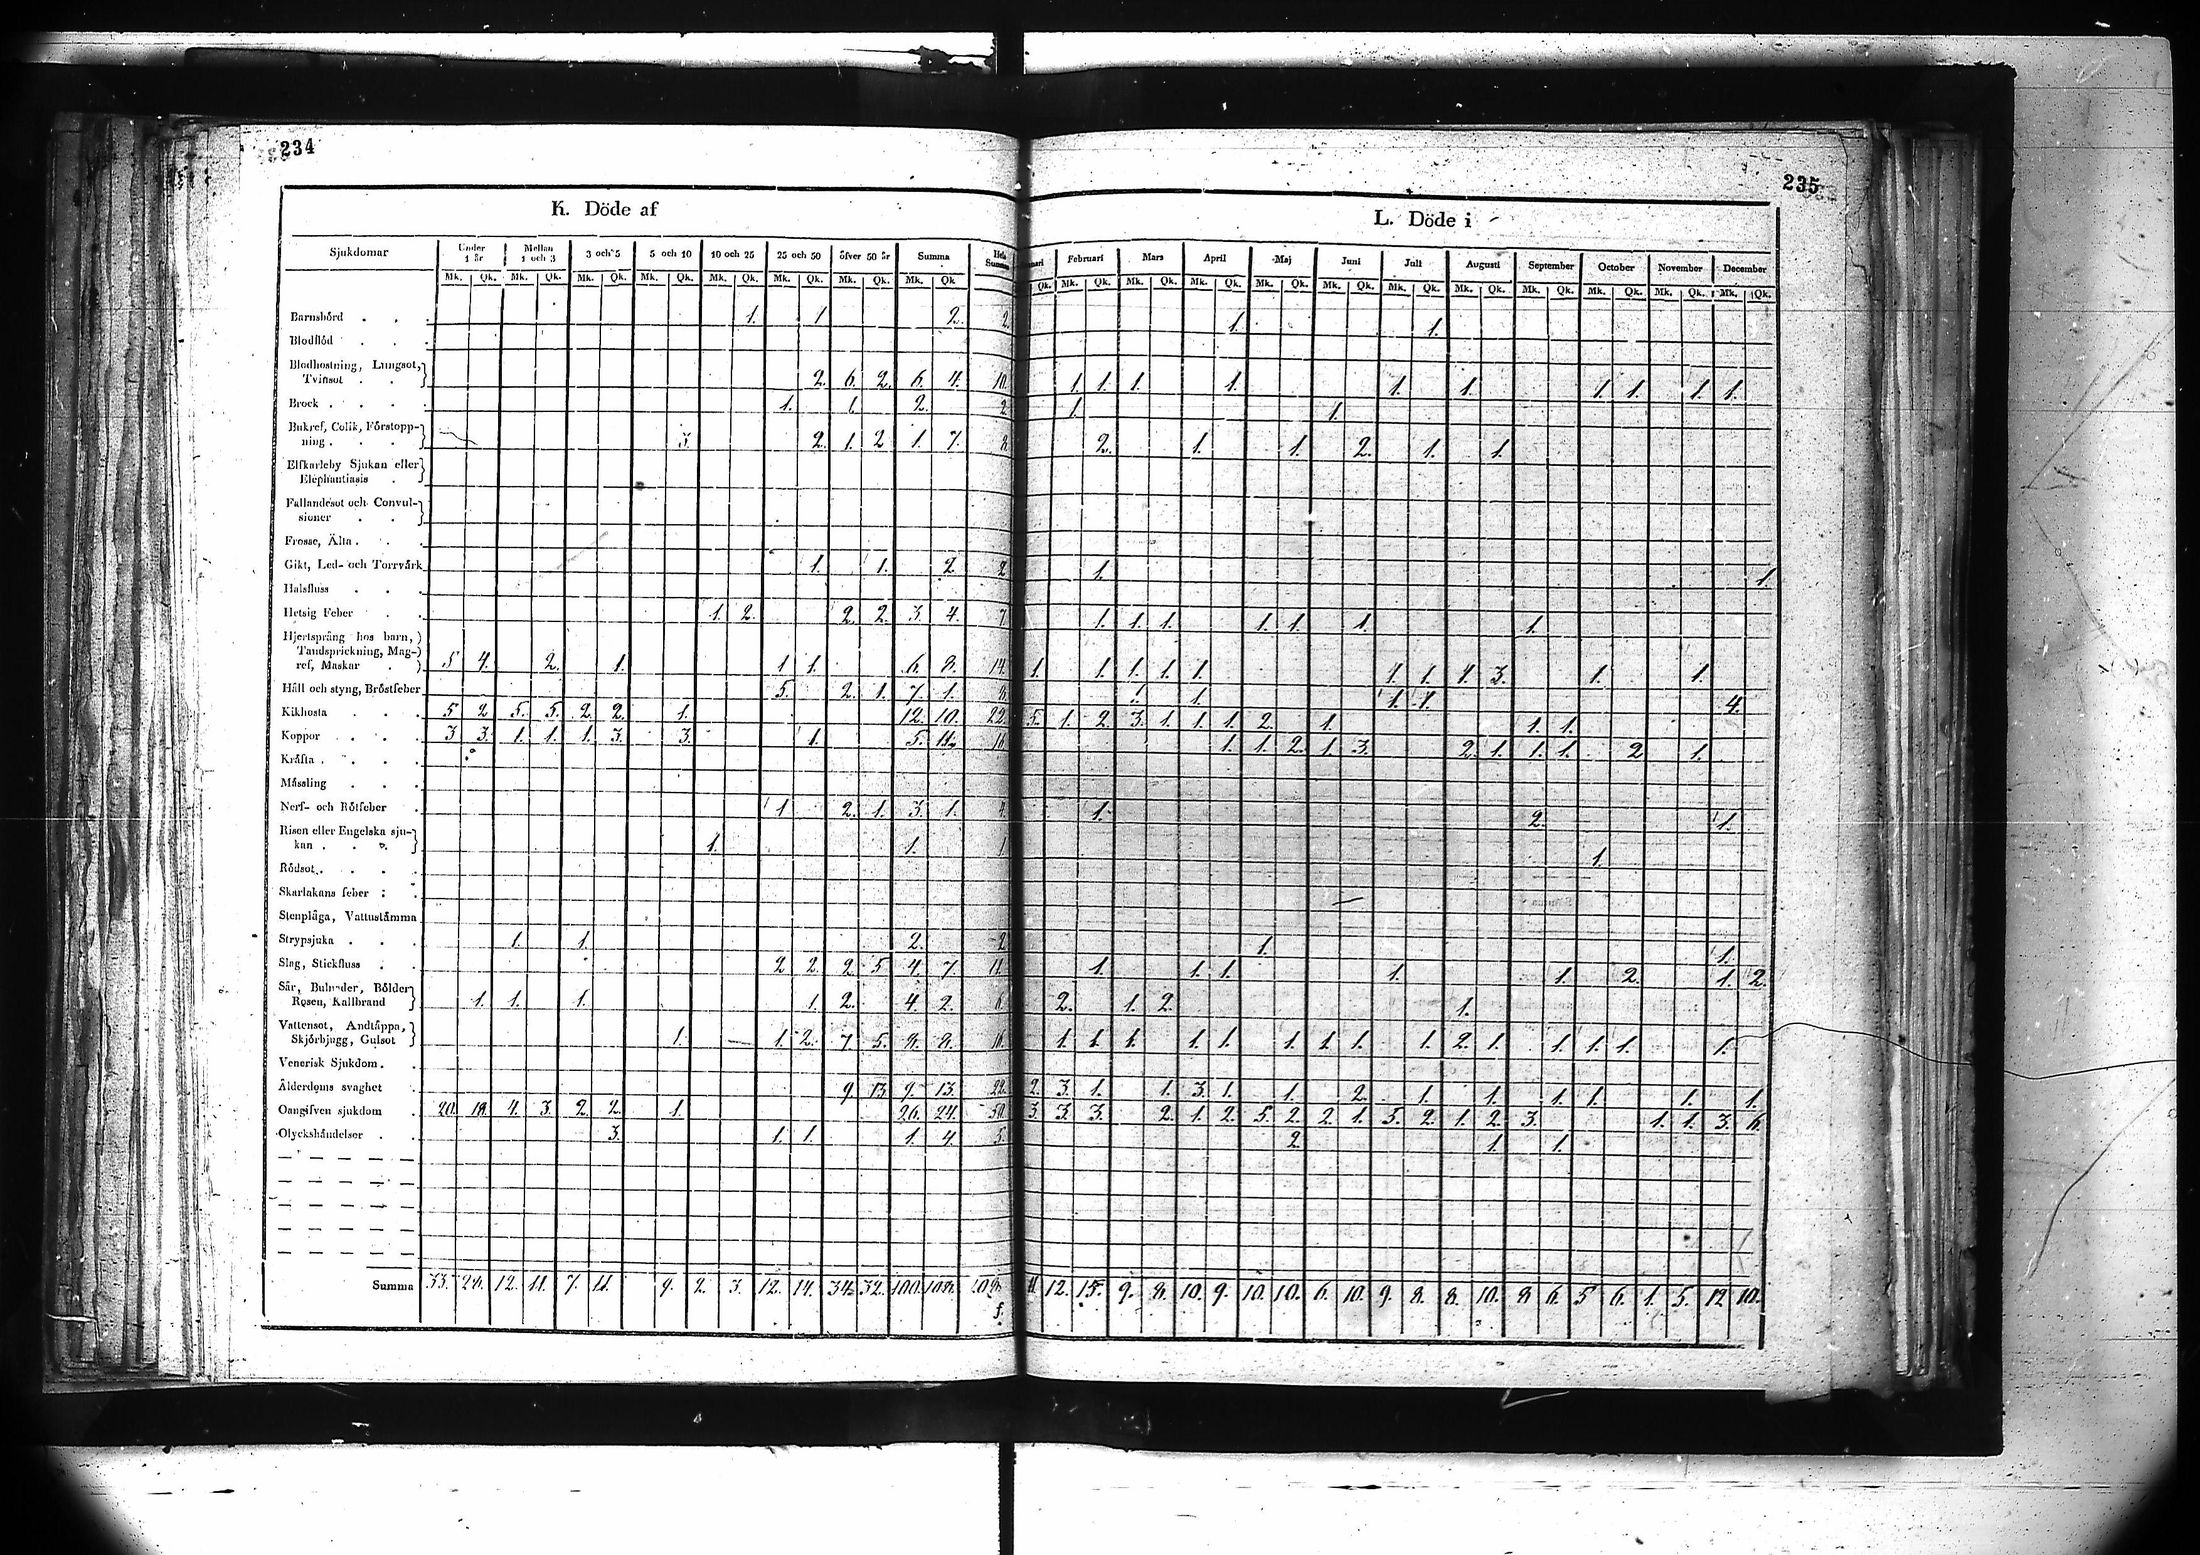 234
K. Döde af
Sjukdomar Under 1 år Mellan 1 och 3 3 och 5 5 och 10 10 och 25 25 och 50 öfver 50 år Summa Hela Summan
Mk. Qk. Mk. Qk. Mk. Qk. Mk. Qk. Mk. Qk. Mk. Qk. Mk. Qk. Mk. Qk
Barnsbörd . . . 1. 1 2. 2.
Blodflöd . . .
Blodhostning, Lungsot,
Tvinsot . . 2. 6. 2. 6. 4. 10.
Brock . . . . 1. 1. 2. 2
Bukref, Colik, Förstopp-
ning . . . 3. 2. 1. 2 1. 7. 8.
Elfkarleby Sjukan eller
Elephantiasis .
Fallandesot och Convul-
sioner . .
Frosse, Älta . . .
Gikt, Led- och Torrvärk 1. 1. 2. 2
Halsfluss . . .
Hetsig Feber . . 1. 2. 2. 2. 3. 4. 7
Hjertsprång hos barn,
Tandsprickning, Mag-
ref, Maskar . 5 4. 2. 1. 1 1. 6. 8. 14.
Håll och styng, Bröstfeber 5. 2. 1. 7. 1. 8.
Kikhosta . . . 5 2 5. 5. 2. 2. 1. 12. 10. 22.
Koppor . . . 3 3. 1. 1. 1. 3. 3. 1. 5. 11. 16
Kräfta . . . .
Mässling . . .
Nerf- och Rötfeber . 1 2. 1. 3. 1. 4.
Risen eller Engelska sju-
kan . . . 1. 1. 1
Rödsot . . . .
Skarlakans feber . .
Stenplåga, Vattustämma
Strypsjuka . . . 1. 1. 2. 2
Slag, Stickfluss . . 2 2. 2. 5 4. 7. 11.
Sår, Bulnader, Bölder
Rosen, Kallbrand 1. 1. 1. 1. 2. 4. 2. 6.
Vattensot, Andtäppa,
Skjörbjugg, Gulsot 1. 1. 2. 7. 5. 8. 8. 16.
Venerisk Sjukdom . .
Ålderdoms svaghet . 9 13 9. 13. 22.
Oangifven sjukdom . 20. 18. 4. 3. 2. 2. 1. 26. 24. 50.
Olyckshändelser . . 3. 1. 1. 1. 4. 5.
Summa 33. 26. 12. 11. 7. 11. 9. 2. 3. 12. 14. 34. 32. 100. 108.
235
L. Döde i
Februari Mars April Maj Juni Juli Augusti September October November December
Qk. Mk. Qk. Mk. Qk. Mk. Qk. Mk. Qk. Mk. Qk. Mk. Qk. Mk. Qk. Mk. Qk. Mk. Qk. Mk. Qk. Mk. Qk.
1. 1.
1. 1. 1. 1. 1. 1. 1. 1. 1. 1.
1. 1.
2. 1. 1. 2. 1. 1.
1. 1.
1. 1. 1. 1. 1. 1. 1.
1. 1. 1. 1. 1. 1. 1. 1. 3. 1. 1.
1. 1. 1. 1. 4.
5. 1. 2. 3. 1. 1. 1. 2. 1. 1. 1.
1. 1. 2. 1. 3. 2. 1. 1. 1. 2 1.
1. 2. 1.
1.
1. 1.
1. 1. 1. 1. 1. 2. 1. 2.
2. 1. 2. 1.
1. 1. 1. 1. 1. 1. 1. 1. 1. 2. 1. 1. 1. 1. 1.
2. 3. 1. 1. 3. 1. 1. 2. 1. 1. 1. 1. 1. 1.
3 3. 3. 2. 1. 2. 5. 2. 2. 1. 5. 2. 1. 2. 3. 1. 1. 3. 6.
2. 1. 1.
11. 12. 15. 9. 8. 10. 9. 10. 10. 6. 10. 9. 8. 8. 10. 8 6. 5 6. 1. 5. 12 10.